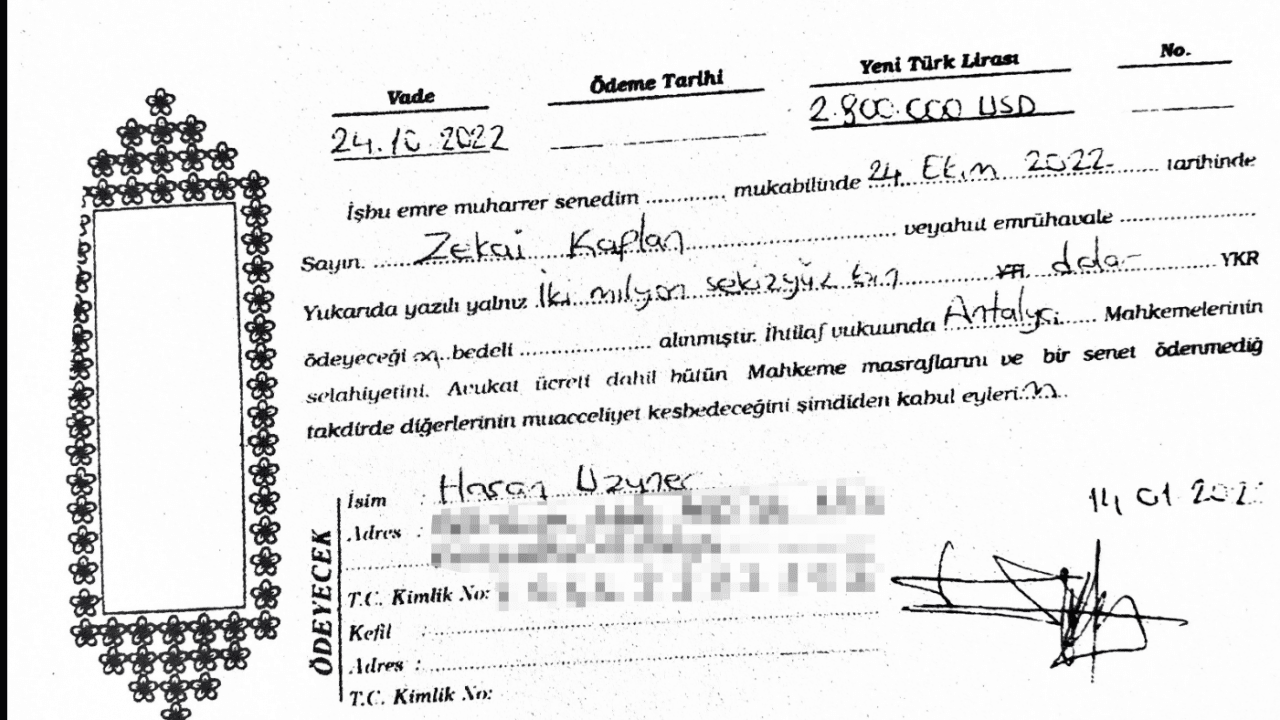 Vade Ödeme Tarihi Yeni Türk Lirası No.
24.10.2022 2.800.000 USD
İşbu emre muharrer senedim ............ mukabilinde 24 Ekim 2022 tarihinde
Sayın. Zekai Kaplan veyahut emrühavale
Yukarıda yazılı yalnız İki milyon sekizyüz bin dolar YKR
ödeyeceği bedeli ............ alınmıştır. İhtilaf vukuunda Antalya Mahkemelerinin
selahiyetini. Avukat ücreti dahil bütün Mahkeme masraflarını ve bir senet ödenmediğ
takdirde diğerlerinin muacceliyet kesbedeceğini şimdiden kabul eyleri.m.
ÖDEYECEK
İsim : Hasan Uzuner
Adres :
T.C. Kimlik No:
Kefil :
Adres :
T.C. Kimlik No:
14 01 202